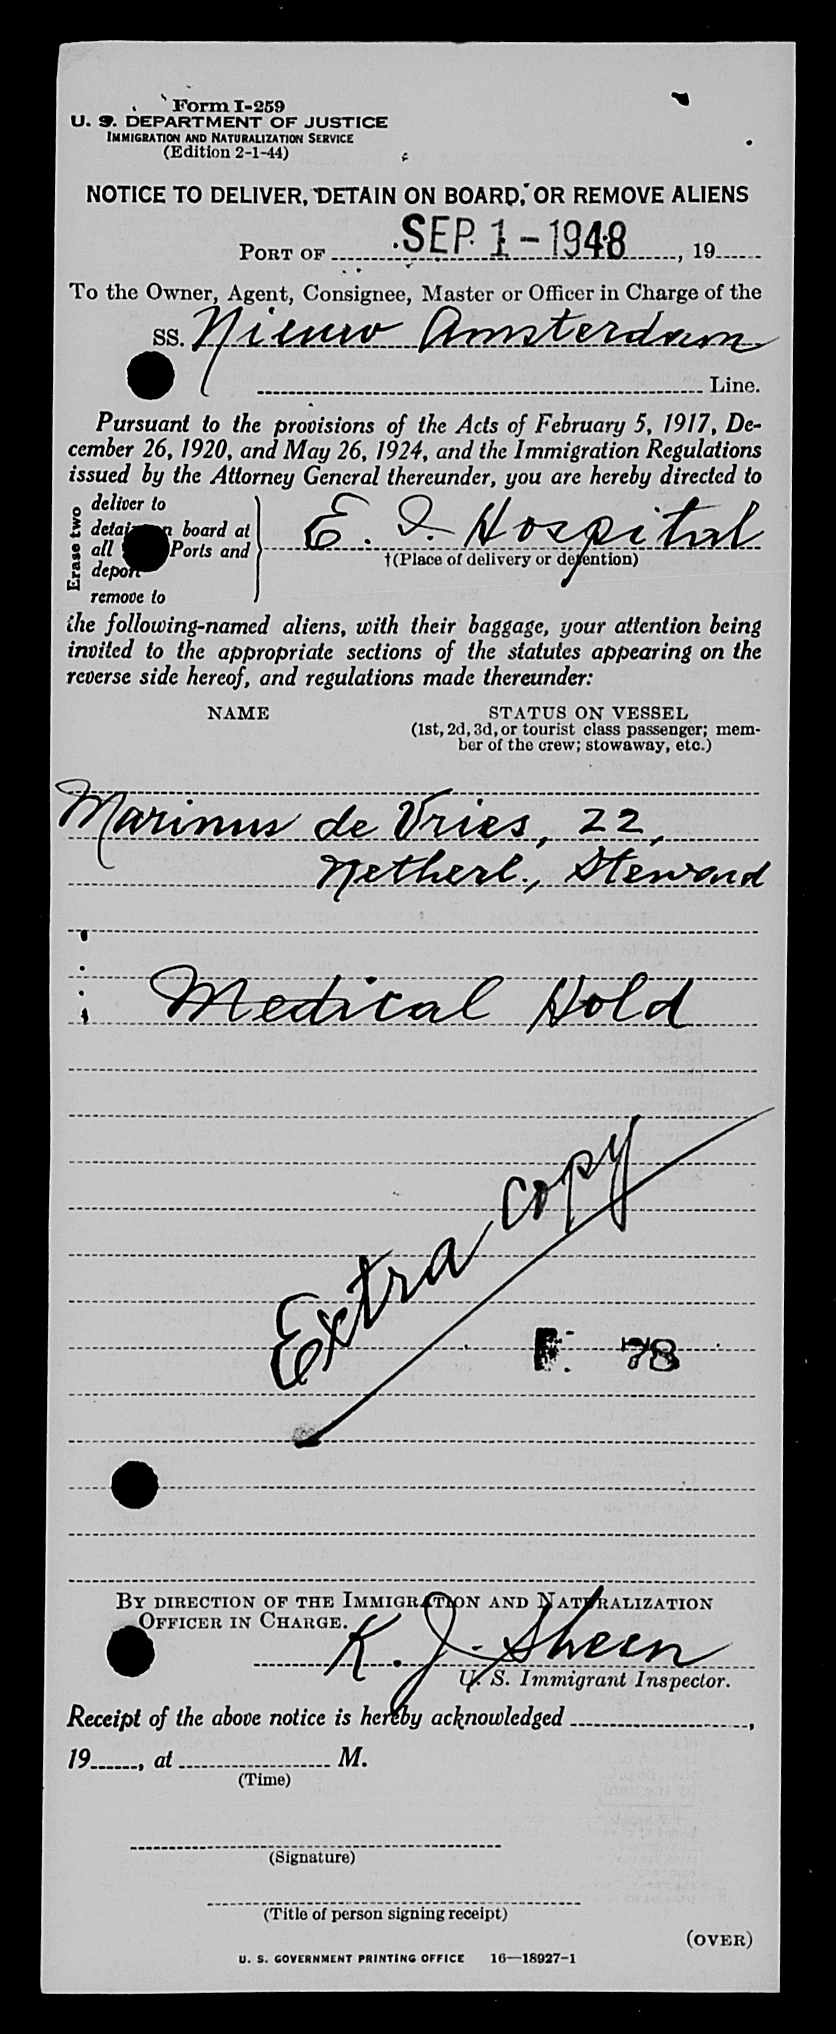 Form I-259
U. S. DEPARTMENT OF JUSTICE
IMMIGRATION AND NATURALIZATION SERVICE
(Edition 2-1-44)
NOTICE TO DELIVER, DETAIN ON BOARD, OR REMOVE ALIENS
PORT OF SEP 1-1948, 19
To the Owner, Agent, Consignee, Master or Officer in Charge of the
SS. Nieuw Amsterdam
Line.
Pursuant to the provisions of the Acts of February 5, 1917, De-
cember 26, 1920, and May 26, 1924, and the Immigration Regulations
issued by the Attorney General thereunder, you are hereby directed to
Erase two
deliver to
detain on board at
all Ports and
deport
remove to
E. I. Hospital
†(Place of delivery or detention)
the following-named aliens, with their baggage, your attention being
invited to the appropriate sections of the statutes appearing on the
reverse side hereof, and regulations made thereunder:
NAME STATUS ON VESSEL
(1st, 2d, 3d, or tourist class passenger; mem-
ber of the crew; stowaway, etc.)
Marinus de Vries, 22,
Netherl., Steward
Medical Hold
Extra copy
78
BY DIRECTION OF THE IMMIGRATION AND NATURALIZATION
OFFICER IN CHARGE.
K. J. Sheen
U. S. Immigrant Inspector.
Receipt of the above notice is hereby acknowledged ,
19 , at M.
(Time)
(Signature)
(Title of person signing receipt)
(OVER)
U. S. GOVERNMENT PRINTING OFFICE 16—18927-1